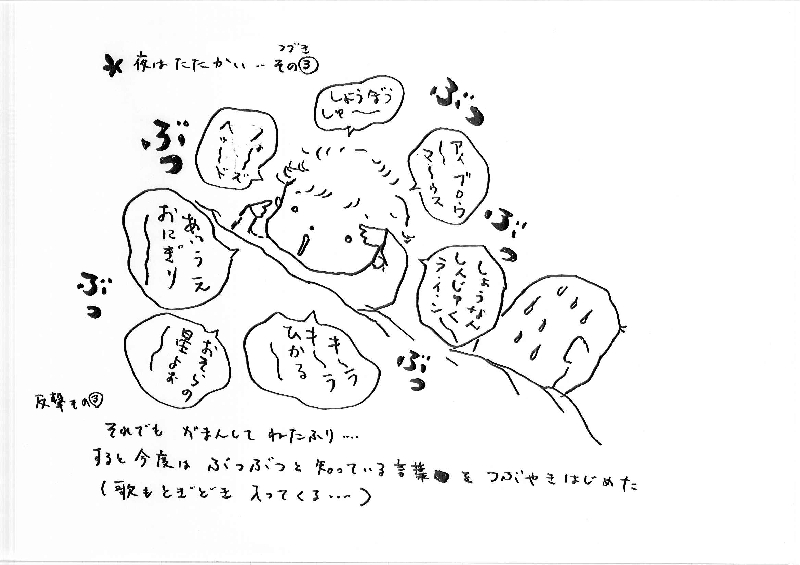 * 夜はたたかい‥その③
つづき
しょうぼう
しゃ〜〜
ぶつ
ぶつ
アイブロウ
マ〜ウス
ぶつ
あいうえ
おにぎり
しょうなん
しんじゅく
ライン
ぶつ
おそらの
星よお
キーラ
キーラ
ひかる
ぶつ
反撃その③
それでも がまんして ねたふり‥‥
すると今度は ぶつぶつと 知っている言葉 を つぶやきはじめた
(歌もときどき 入ってくる‥‥)